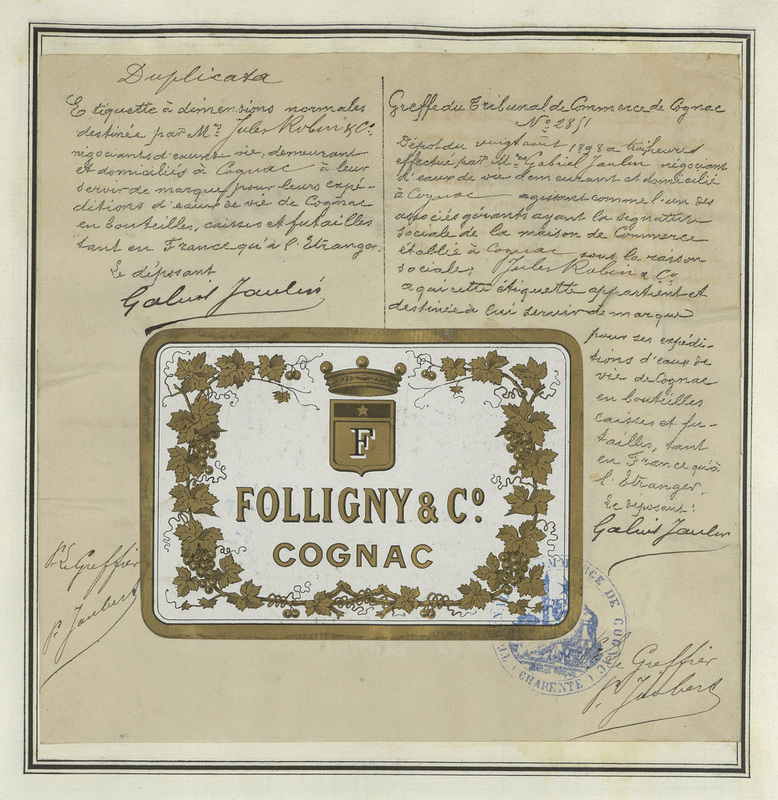 Duplicata
Etiquette à dimensions normales
destinée par Mrs Jules Robin & Co.
négociants d'eau de vie, demeurant
et domiciliés à Cognac à leur
servir de marque pour leurs expé-
ditions d'eau de vie de Cognac
en bouteilles, caisses et futailles
tant en France qu'à l'Etranger.
Le déposant
Gabriel Jaulin
Greffe du Tribunal de Commerce de Cognac
No 2851
Dépôt du vingt août 1898 à trois heures
effectué par Mr Gabriel Jaulin négociant
d'eaux de vie demeurant et domicilié
à Cognac agissant comme l'un des
associés gérants ayant la signature
sociale de la maison de Commerce
établie à Cognac sous la raison
sociale: Jules Robin & Co
à qui cette étiquette appartient et
destinée à lui servir de marque
pour ses expédi-
tions d'eaux de
vie de Cognac
en bouteilles
caisses et fu-
tailles, tant
en France qu'à
l'Etranger.
Le déposant:
Gabriel Jaulin
F
FOLLIGNY & Co.
COGNAC
Pr Le Greffier
P. Jaubert
COMMERCE DE COGNAC
(CHARENTE)
Le Greffier
P. Jaubert